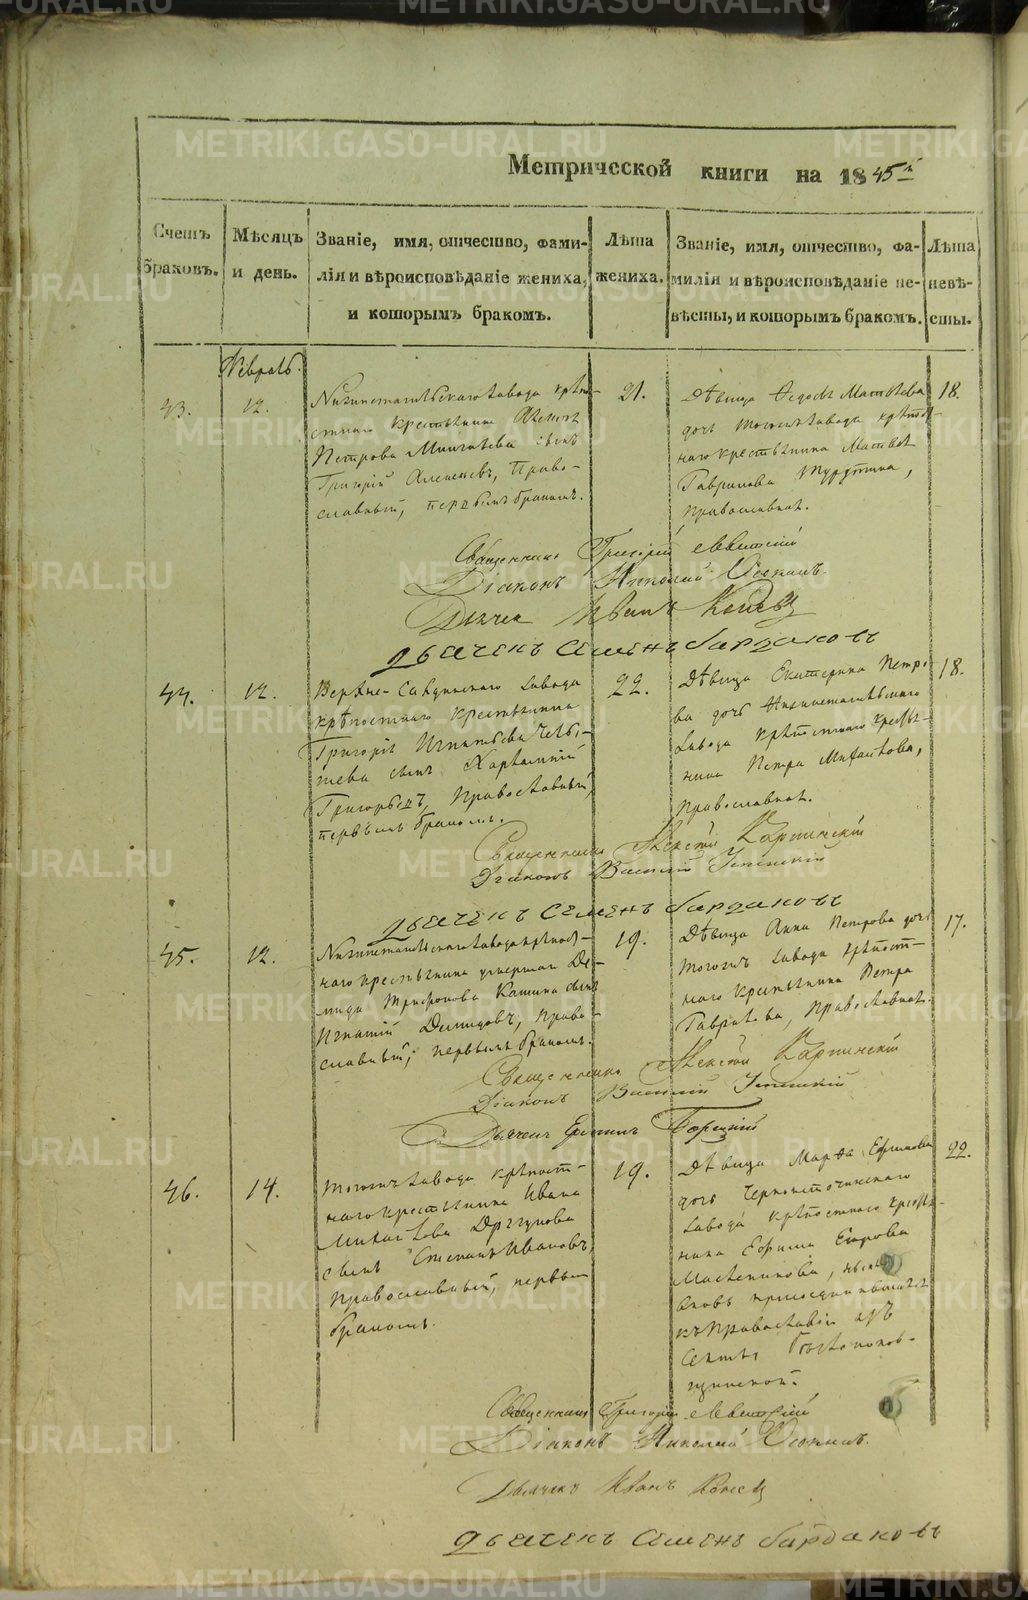 METRIKI.GASO-URAL.RU
Метрической книги на 1845й
Счетъ браковъ.
Мѣсяцъ и день.
Званіе, имя, отчество, фами-
лія и вѣроисповѣданіе жениха,
и которымъ бракомъ.
Лѣта
жениха.
Званіе, имя, отчество, фа-
милія и вѣроисповѣданіе не-
вѣсты, и которымъ бракомъ.
Лѣта
невѣ-
сты.
Февраль.
43.
12.
Нижнетагильскаго завода крѣпо-
стнаго крестьянина
Петрова сынъ
Григорій Алексѣевъ, Право-
славный, первымъ бракомъ.
21.
Дѣвица Ѳедосья Матвѣева
дочь тогожъ завода крѣпост-
наго крестьянина Матвѣя
Гаврилова
православная.
18.
Священникъ Григорій
Діаконъ Николай
Дьячекъ Иванъ
Дьячекъ Семенъ Бардаковъ
44.
12.
Верхне-Салдинскаго завода
крѣпостнаго крестьянина
Григорія Игнатьева
сынъ Харлампій
Григорьевъ, Православный,
первымъ бракомъ.
22.
Дѣвица Екатерина Петро-
ва дочь Нижнетагильскаго
завода крѣпостнаго крестья-
нина Петра
православная.
18.
Священникъ Алексѣй Карпинскій
Діаконъ Василій Успенскій
Дьячекъ Семенъ Бардаковъ
45.
12.
Нижнетагильскаго завода крѣпост-
наго крестьянина умершаго Де-
мида Трифонова Кашина сынъ
Игнатій Демидовъ, Право-
славный, первымъ бракомъ.
19.
Дѣвица Анна Петрова дочь
тогожъ завода крѣпост-
наго крестьянина Петра
Гаврилова, Православная.
17.
Священникъ Алексѣй Карпинскій
Діаконъ Василій Успенскій
Дьячекъ
46.
14.
Тогожъ завода крѣпост-
наго крестьянина Ивана
Михайлова Драгунова
сынъ Степанъ Ивановъ,
Православный, первымъ
бракомъ.
19.
Дѣвица Марѳа Ефимова
дочь Черноисточинскаго
завода крѣпостнаго крестья-
нина Ефима Егорова
Масленникова,
вновь присоединившаяся
къ Православію изъ
Секты Безпопов-
щинской.
22.
Священникъ Григорій
Діаконъ Николай
Дьячекъ Иванъ
Дьячекъ Семенъ Бардаковъ